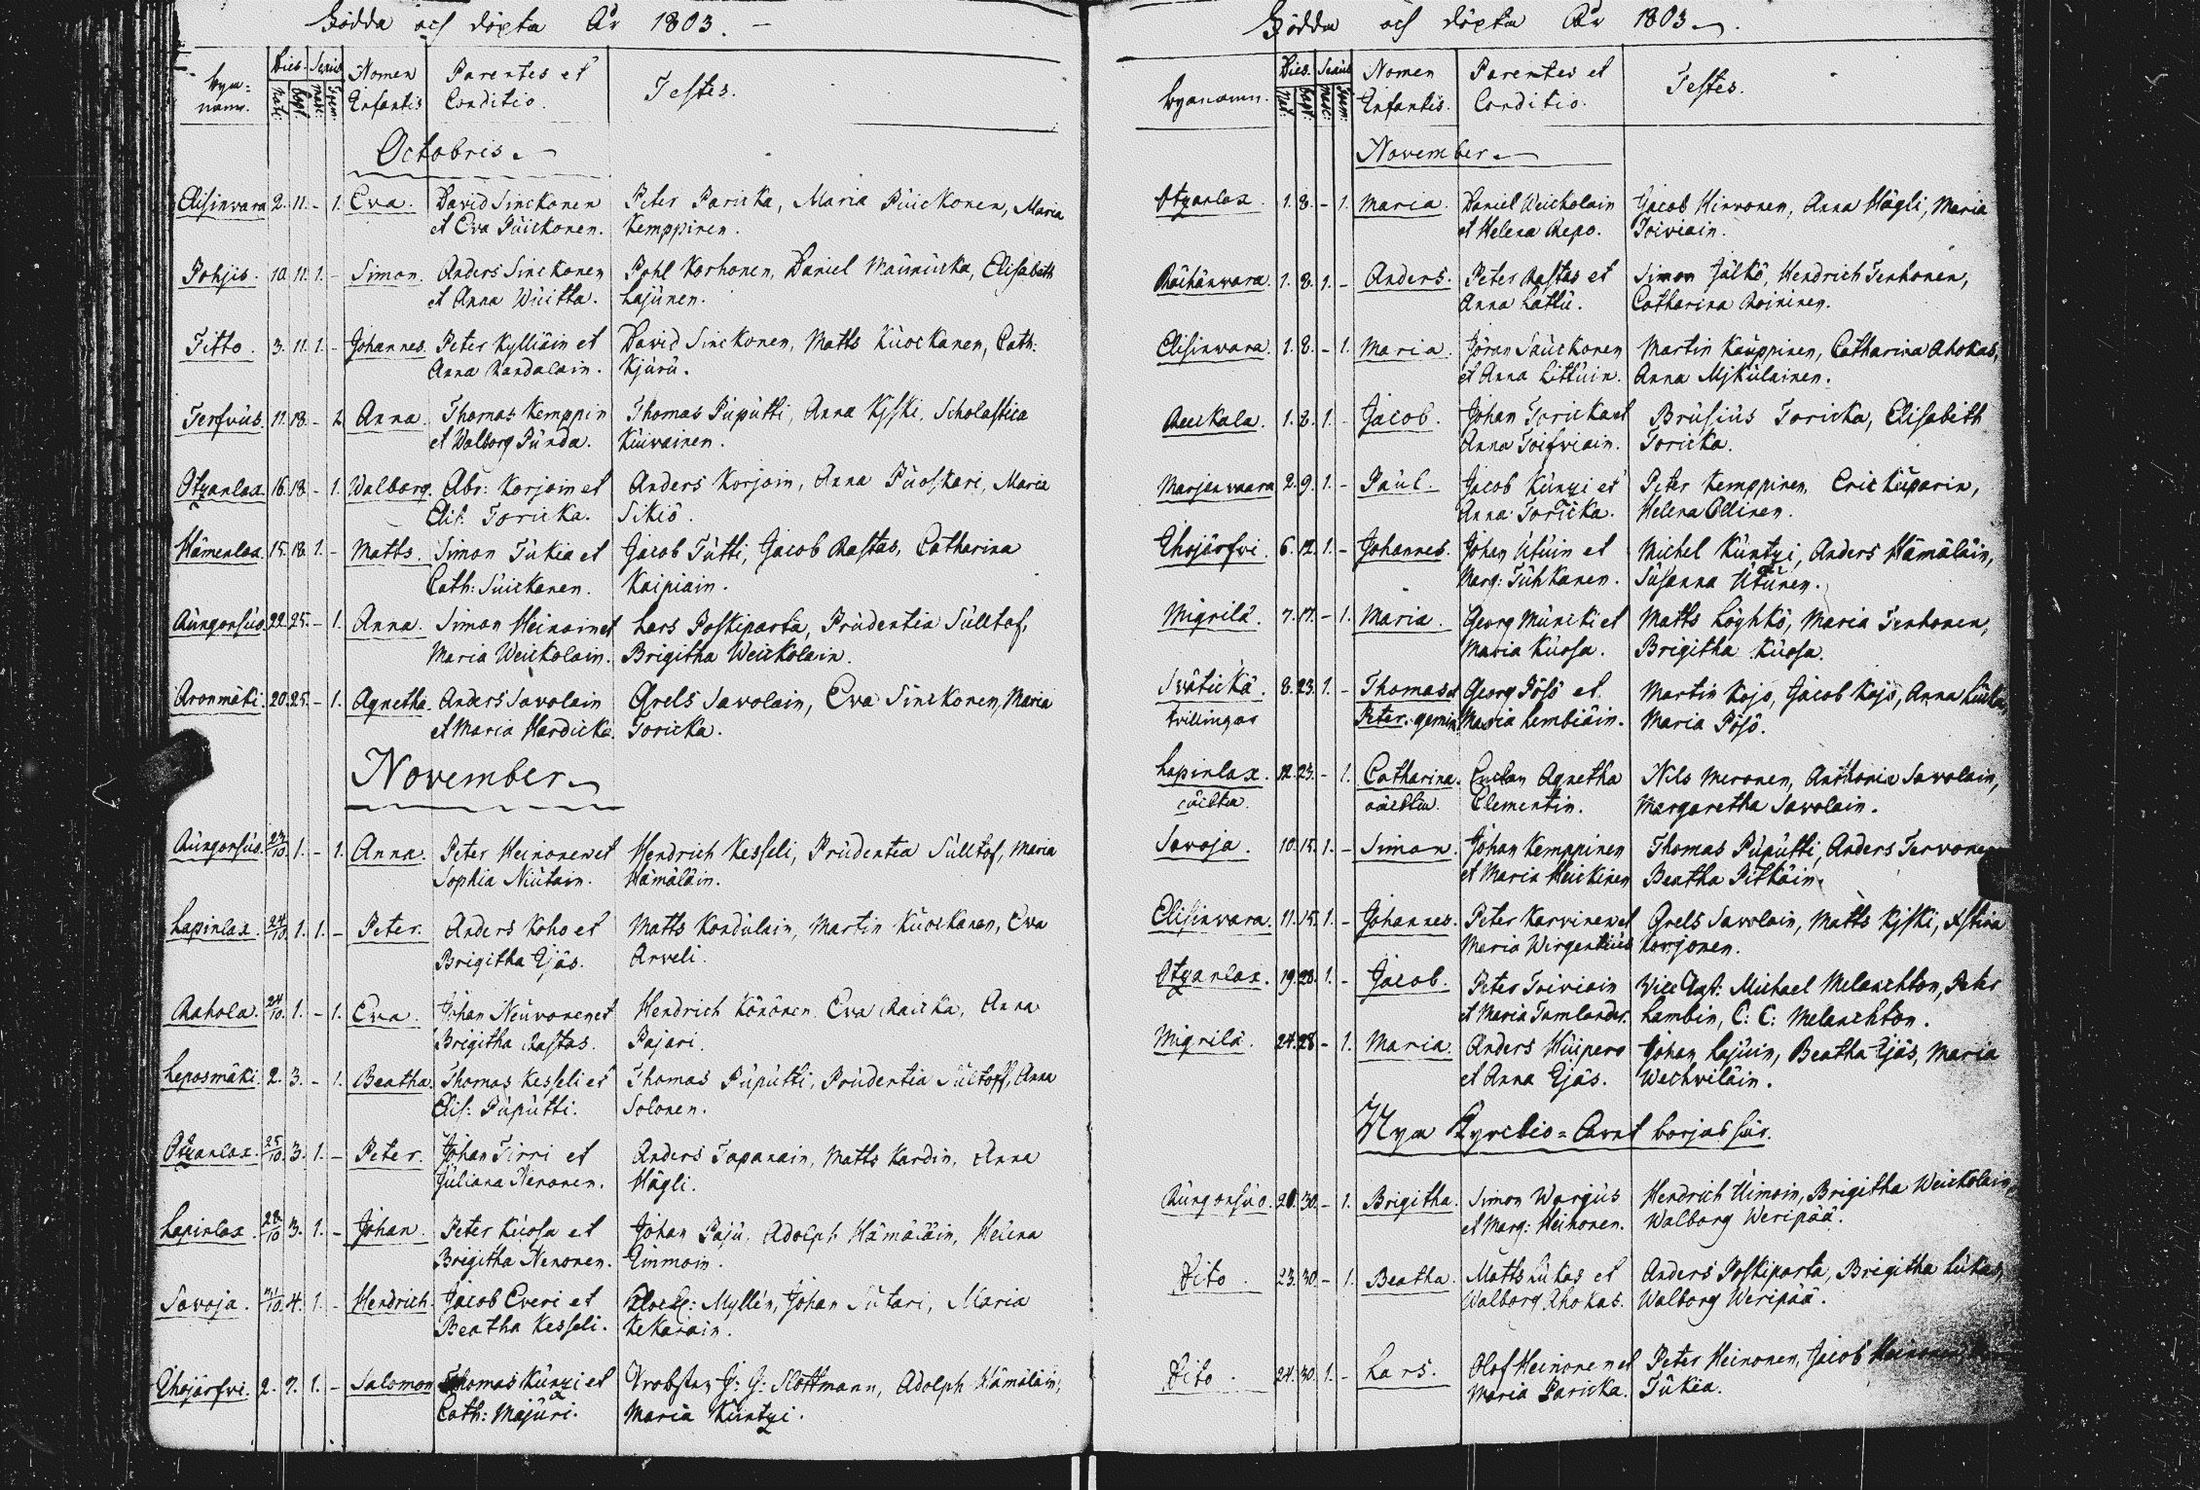 Födda och döpta År 1803.
By=
namn.
Dies.
Sexus
Nomen
Infantis
Parentes et
Conditio.
Testes.
Nat:
Bapt:
Masc:
Foem:
Octobris.
Elisinwara 2. 11. - 1. Eva. David Sinckonen Peter Paricka, Maria Puickonen, Maria
et Eva Puickonen. Kemppinen.
Pohjis. 10. 11. 1. - Simon. Anders Sinckonen Pohl Korhonen, Daniel Maunucka, Elisabeth
et Anna Wuitta. Lajunen.
Titto. 3. 11. 1. - Johannes. Peter Kylliäin et David Sinckonen, Matts Kuockanen, Cath:
Anna Kandalain. Kjuru.
Terfvus. 11. 18. - 1. Anna. Thomas Kemppin Thomas Puputti, Anna Kjski, Scholastica
et Walborg Punda. Kuivainen.
Otzanlax 16. 18. - 1. Walborg. Abr: Korjain et Anders Korjain, Anna Puoskari, Maria
Elis: Toricka. Sikiö.
Hämenlax. 15. 18. 1. - Matts. Simon Tukia et Jacob Tutti, Jacob Rastas, Catharina
Cath: Suickanen. Kaipiain.
Rungonsuo. 22. 25. - 1. Anna. Simon Heinoin et Lars Poskiparta, Prudentia Sulltof,
Maria Weickolain. Brigitha Weickolain.
Aronmäki. 20. 25. - 1. Agnetha. Anders Savolain Grels Savolain, Eva Sinckonen, Maria
et Maria Hardicka. Toricka.
November
Rungonsuo. 23/10. 1. - 1. Anna. Peter Heinonen et Hendrich Kesseli, Prudentia Sulltof, Maria
Sophia Niutain. Hämäläin.
Lapinlax. 24/10. 1. 1. - Peter. Anders Koho et Matts Kondulain, Martin Kuockanen, Eva
Brigitha Ejäs. Arveli.
Rahola. 24/10. 1. - 1. Eva. Johan Neuvonen et Hendrich Könönen Eva Raicka, Anna
Brigitha Rastas. Pajari.
Leposmäki. 2. 3. - 1. Beatha. Thomas Kesseli et Thomas Puputti, Prudentia Sultoff, Anna
Elis: Puputti. Solonen.
Otzanlax. 25/10. 3. 1. - Peter. Johan Tirri et Anders Tapanain, Matts Kardin, Anna
Juliana Nenonen. Hägli.
Lapinlax. 28/10 3. 1. - Johan. Peter Kuosa et Johan Paju, Adolph Hämäläin, Helena
Brigitha Nenonen. Einmoin.
Savoja. 4. 1. - Hendrich. Jacob Everi et Klock: Myllén, Johan Sutari, Maria
Beatha Kesseli. Kekarain.
Ihojärfvi. 2. 7. 1. - Salomon Thomas Kunzi et Probsten G: G: Slottmann, Adolph Hämäläin,
Cath: Majuri. Maria Kuntzi.
Födda och döpta År 1803.
Bynamn.
Dies.
Sexus
Nomen
Infantis.
Parentes et
Conditio.
Testes.
Nat:
Bapt:
Masc:
Foem:
November
Otzanlax. 1. 8. - 1. Maria. Daniel Weickolain Jacob Hirvonen, Anna Hägli, Maria
et Helena Repo. Toiviain.
Räihänwara. 1. 8. 1. - Anders. Peter Rastas et Simon Jälkö, Hendrich Tenhonen,
Anna Lattu. Catharina Roininen.
Elisinwara. 1. 8. - 1. Maria. Jöran Sauckonen Martin Kauppinen, Catharina Ahokas,
et Anna Littuin. Anna Mjkulainen.
Reuckala. 1. 8. 1. - Jacob. Johan Toricka et Brusius Toricka, Elisabeth
Anna Toifviain. Toricka.
Marjanvaara 2. 9. 1. - Paul. Jacob Kunzi et Peter Kemppinen, Eric Kuparin,
Anna Toricka. Helena Ollinen.
Ihojärfvi. 6. 12. 1. - Johannes. Johan Utuin et Michel Kuntzi, Anders Hämäläin,
Marg: Tuhkanen. Susanna Utunen.
Migrilä. 7. 17. - 1. Maria. Georg Muncki et Matts Löyhkö, Maria Tenhonen,
Maria Kuosa. Brigitha Kuosa.
Svätickä. 8. 23. 1. - Thomas et Georg Pösö et Martin Kojo, Jacob Kojo, Anna
tvillingar Peter. gemin. Maria Lembiäin. Maria Pösö.
Lapinlax. 12. 23. - 1. Catharina. Enckan Agnetha Nils Meronen, Anthonia Savolain,
oäckta. oäckta. Clementin. Margaretha Savolain.
Savoja. 10. 15. 1. - Simon. Johan Kemppinen Thomas Puputti, Anders Tervonen
et Maria Heickinen Beatha Pitkäin.
Elisinvara. 11. 15. 1. - Johannes. Peter Karvinen et Grels Savolain, Matts Kjski, Xstina
Maria Wirgentius Korjonen.
Otzanlax. 19. 28. 1. - Jacob. Peter Toiviain Vice Past: Michael Melanchton, Peter
et Maria Tamlander. Lambin, C: C: Melanchton.
Migrilä. 24. 28 - 1. Maria. Anders Huipero Johan Lajuin, Beatha Ejäs, Maria
et Anna Ejäs. Wechviläin.
Nya Kyrckio=Året börjas här.
Rungonsuo. 20. 30. - 1. Brigitha. Simon Wargus Hendrich Uimoin, Brigitha Weickolain,
et Marg: Heinonen. Walborg Weripää.
Dito. 23. 30 - 1. Beatha. Matts Lukas et Anders Poskiparta, Brigitha Lukas,
Walborg Ahokas. Walborg Weripää.
Dito. 24. 30. 1. - Lars. Olof Heinonen et Peter Heinonen, Jacob Heinonen,
Maria Paricka. Tukia.